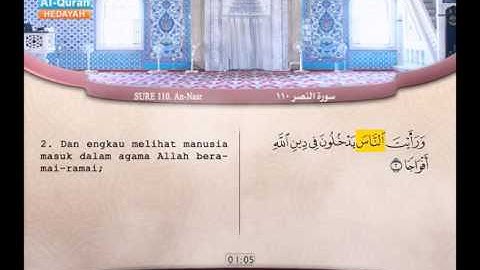 Al-Quran
HEDAYAH
SURE 110. An-Nasr
سورة النصر ١١٠
2. Dan engkau melihat manusia
masuk dalam agama Allah bera-
mai-ramai;
وَرَأَيْتَ ٱلنَّاسَ يَدْخُلُونَ فِي دِينِ ٱللَّهِ
أَفْوَاجًا ٢
01:05